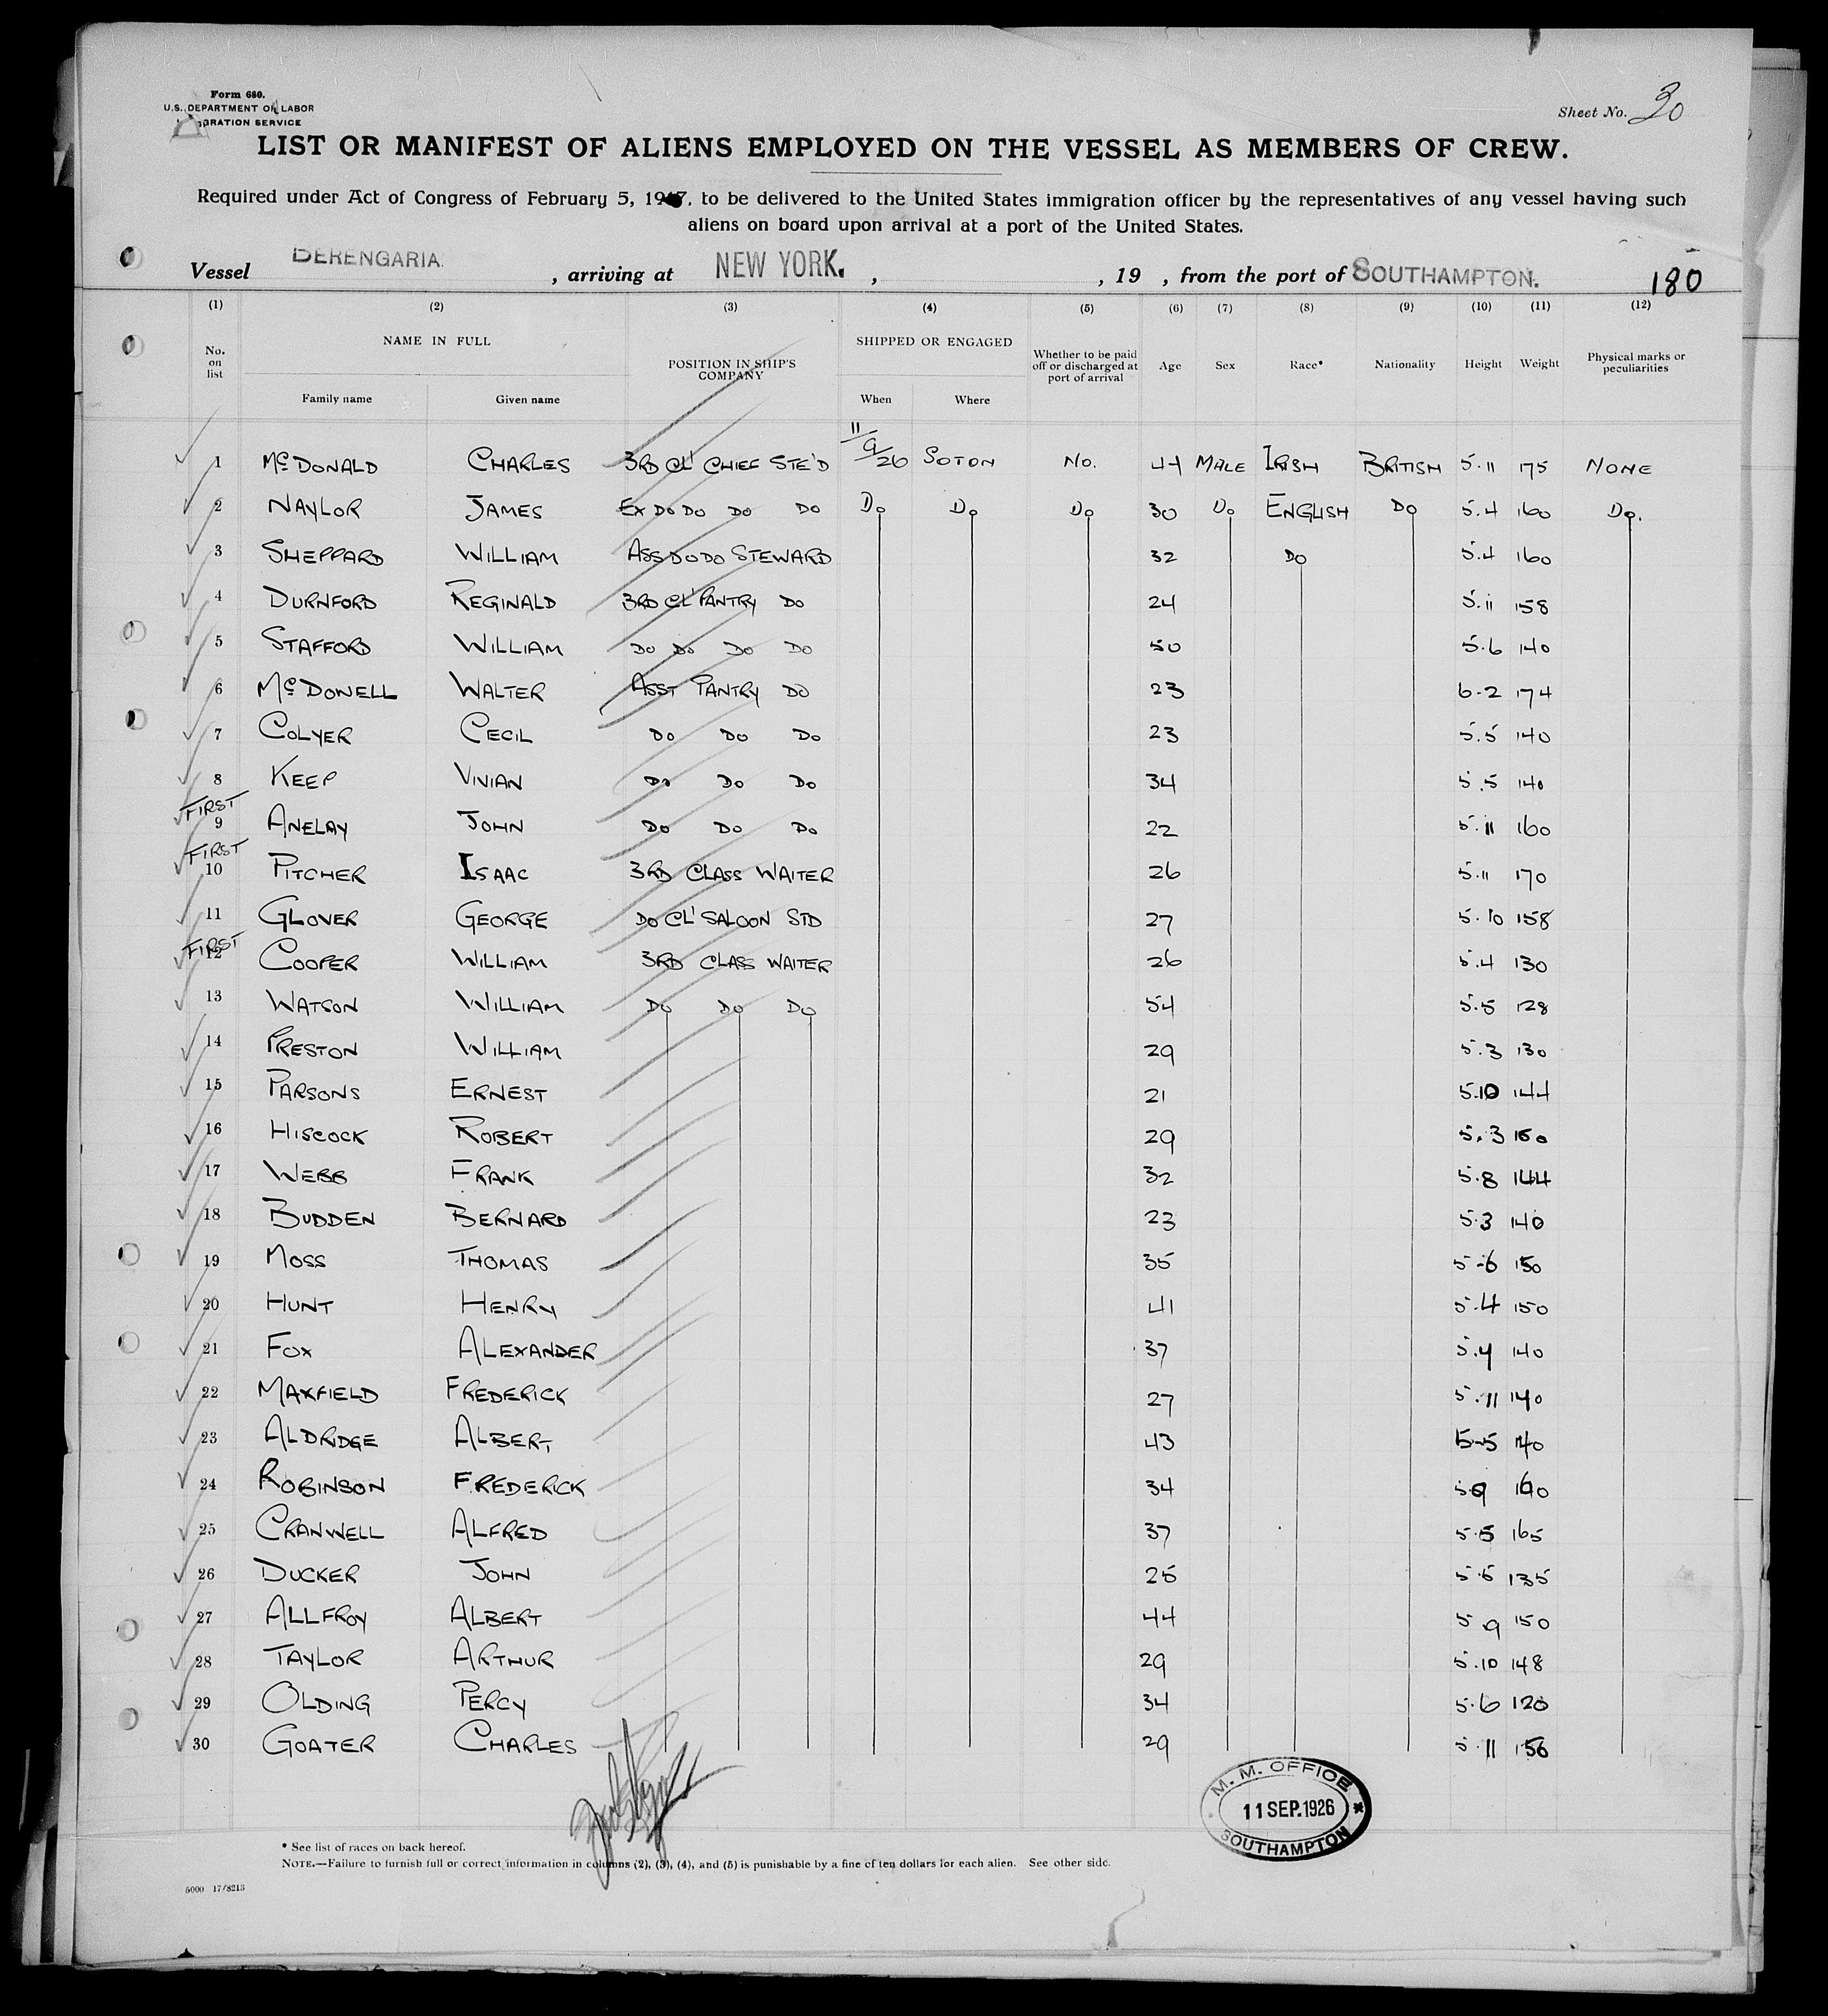 Form 680.
U.S. DEPARTMENT OF LABOR
IMMIGRATION SERVICE
Sheet No. 30
LIST OR MANIFEST OF ALIENS EMPLOYED ON THE VESSEL AS MEMBERS OF CREW.
Required under Act of Congress of February 5, 1917, to be delivered to the United States immigration officer by the representatives of any vessel having such
aliens on board upon arrival at a port of the United States.
Vessel BERENGARIA. , arriving at NEW YORK. , , 19 , from the port of SOUTHAMPTON. 180
(1) (2) (3) (4) (5) (6) (7) (8) (9) (10) (11) (12)
No. on list NAME IN FULL Family name Given name POSITION IN SHIP'S COMPANY SHIPPED OR ENGAGED When Where Whether to be paid off or discharged at port of arrival Age Sex Race* Nationality Height Weight Physical marks or peculiarities
1 McDONALD CHARLES 3RD CL' CHIEF STE'D 11/9/26 SOTON No. 44 MALE IRISH BRITISH 5.11 175 NONE
2 NAYLOR JAMES EX DO DO DO DO Do Do Do 30 Do ENGLISH Do 5.4 160 Do.
3 SHEPPARD WILLIAM ASS DO DO STEWARD 32 DO 5.4 160
4 DURNFORD REGINALD 3RD CL' PANTRY DO 24 5.11 158
5 STAFFORD WILLIAM DO DO DO DO 50 5.6 140
6 McDOWELL WALTER ASST PANTRY DO 23 6-2 174
7 COLYER CECIL DO DO DO 23 5.5 140
8 KEEP VIVIAN DO DO DO 34 5.5 140
FIRST 9 ANELAY JOHN DO DO DO 22 5.11 160
FIRST 10 PITCHER ISAAC 3RD CLASS WAITER 26 5.11 170
11 GLOVER GEORGE DO CL' SALOON STD 27 5.10 158
FIRST 12 COOPER WILLIAM 3RD CLASS WAITER 26 5.4 130
13 WATSON WILLIAM DO DO DO 54 5.5 128
14 PRESTON WILLIAM 29 5.3 130
15 PARSONS ERNEST 21 5.10 144
16 HISCOCK ROBERT 29 5.3 160
17 WEBB FRANK 32 5.8 144
18 BUDDEN BERNARD 23 5.3 140
19 MOSS THOMAS 35 5-6 150
20 HUNT HENRY 41 5.4 150
21 FOX ALEXANDER 37 5.4 140
22 MAXFIELD FREDERICK 27 5.11 140
23 ALDRIDGE ALBERT 43 5-5 140
24 ROBINSON FREDERICK 34 5.9
25 CRANWELL ALFRED 37 5.5 165
26 DUCKER JOHN 25 135
27 ALLFROY ALBERT 44 5.9 150
28 TAYLOR ARTHUR 29 5.10 148
29 OLDING PERCY 34 5.6 120
30 GOATER CHARLES 29 5.11 156
M. M. OFFICE
11 SEP. 1926
SOUTHAMPTON
* See list of races on back hereof.
NOTE.—Failure to furnish full or correct information in columns (2), (3), (4), and (5) is punishable by a fine of ten dollars for each alien. See other side.
5000 17/8213